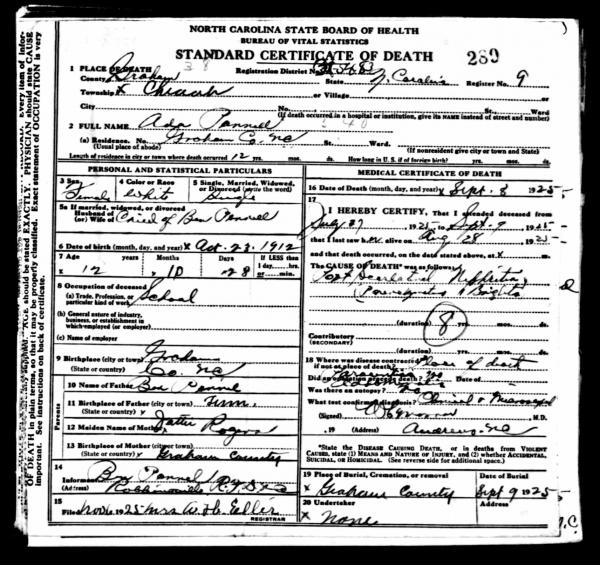 NORTH CAROLINA STATE BOARD OF HEALTH
BUREAU OF VITAL STATISTICS
STANDARD CERTIFICATE OF DEATH 289
1 PLACE OF DEATH
County Graham Registration District No. State N. Carolina Register No. 9
Township x Cheoah or Village
City No. St. Ward
(If death occurred in a hospital or institution, give its NAME instead of street and number)
2 FULL NAME Ada Pannell
(a) Residence. No. Graham Co. NC St. Ward.
(Usual place of abode) (If nonresident give city or town and State)
Length of residence in city or town where death occurred 12 yrs. mos. ds. How long in U. S. if of foreign birth? yrs. mos. ds.
PERSONAL AND STATISTICAL PARTICULARS
3 Sex 4 Color or Race 5 Single, Married, Widowed, or Divorced (write the word)
Female White Single
5a If married, widowed, or divorced
Husband of
(or) Wife of Child of Ben Pannell
6 Date of birth (month, day, and year) x Oct. 23. 1912
7 Age Years Months Days If LESS than 1 day, hrs. or min.
x 12 10 28
8 Occupation of deceased
(a) Trade, Profession, or particular kind of work School
(b) General nature of industry, business, or establishment in which employed (or employer)
(c) Name of employer
9 Birthplace (city or town) Graham
(State or country) Co. NC
Parents
10 Name of Father Ben Pannell
11 Birthplace of Father (city or town)
(State or country) x Tenn.
12 Maiden Name of Mother Rogers
13 Birthplace of Mother (city or town)
(State or country) x Graham County
14
Informant Ben Pannell
(Address) Robbinsville
15
Filed 1925 Mrs W. H.
REGISTRAR
MEDICAL CERTIFICATE OF DEATH
16 Date of Death (month, day, and year) x Sept. 8 1925
17
I HEREBY CERTIFY, That I attended deceased from
Aug 27 1925 to Sept. 9 1925
that I last saw her alive on Aug 28 1925
and that death occurred, on the date stated above, at x m.
The CAUSE OF DEATH was as follows:
Post Scarlatinal Nephritis
(duration) 8 yrs. mos. ds.
Contributory
(SECONDARY)
(duration) yrs. mos. ds.
18 Where was disease contracted
if not at place of death? Place of death
Did an operation precede death? no Date of
Was there an autopsy? No
What test confirmed diagnosis? Clinical &
(Signed) M.D.
, 19 (Address) Andrews, NC
*State the DISEASE CAUSING DEATH, or in deaths from VIOLENT CAUSES, state (1) MEANS AND NATURE OF INJURY, and (2) whether ACCIDENTAL, SUICIDAL, or HOMICIDAL. (See reverse side for additional space.)
19 Place of Burial, Cremation, or removal Date of Burial
x Graham County Sept 9 1925
20 Undertaker
x None